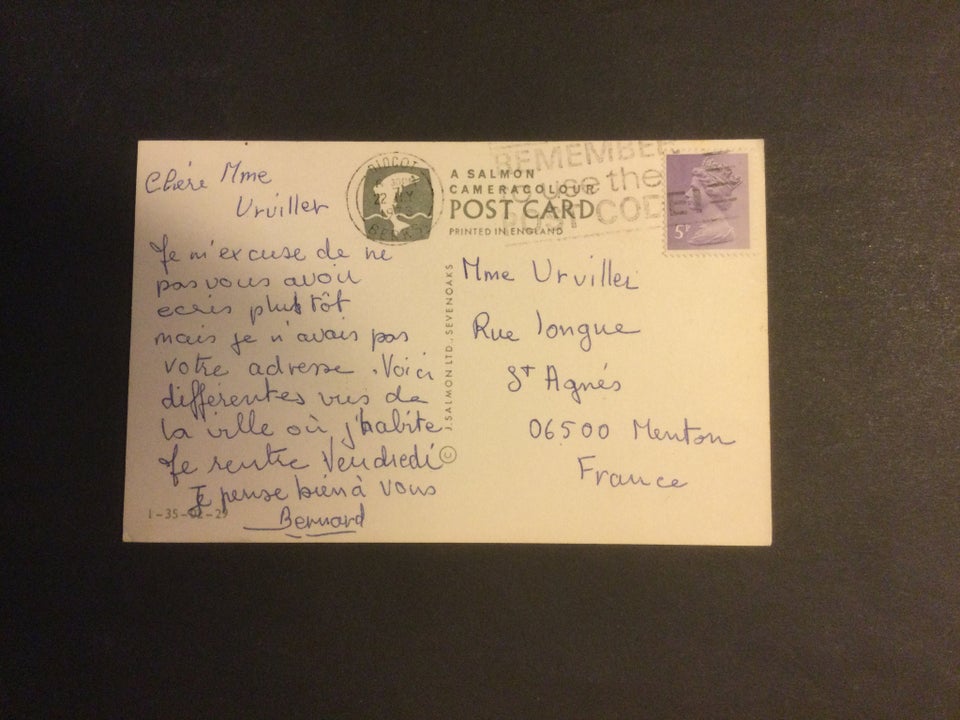 Chère Mme
Urviller
Je m'excuse de ne
pas vous avoir
ecris plutôt
mais je n'avais pas
votre adresse. Voici
différentes vues de
la ville où j'habite
Je rentre Vendredi
Je pense bien à vous
Bernard
1-35-02-29
DIDCOT
22
BERKS
A SALMON
CAMERACOLOUR
POST CARD
PRINTED IN ENGLAND
© J. SALMON LTD., SEVENOAKS
REMEMBER
to use the
POST CODE
5P
Mme Urviller
Rue longue
St Agnés
06500 Menton
France